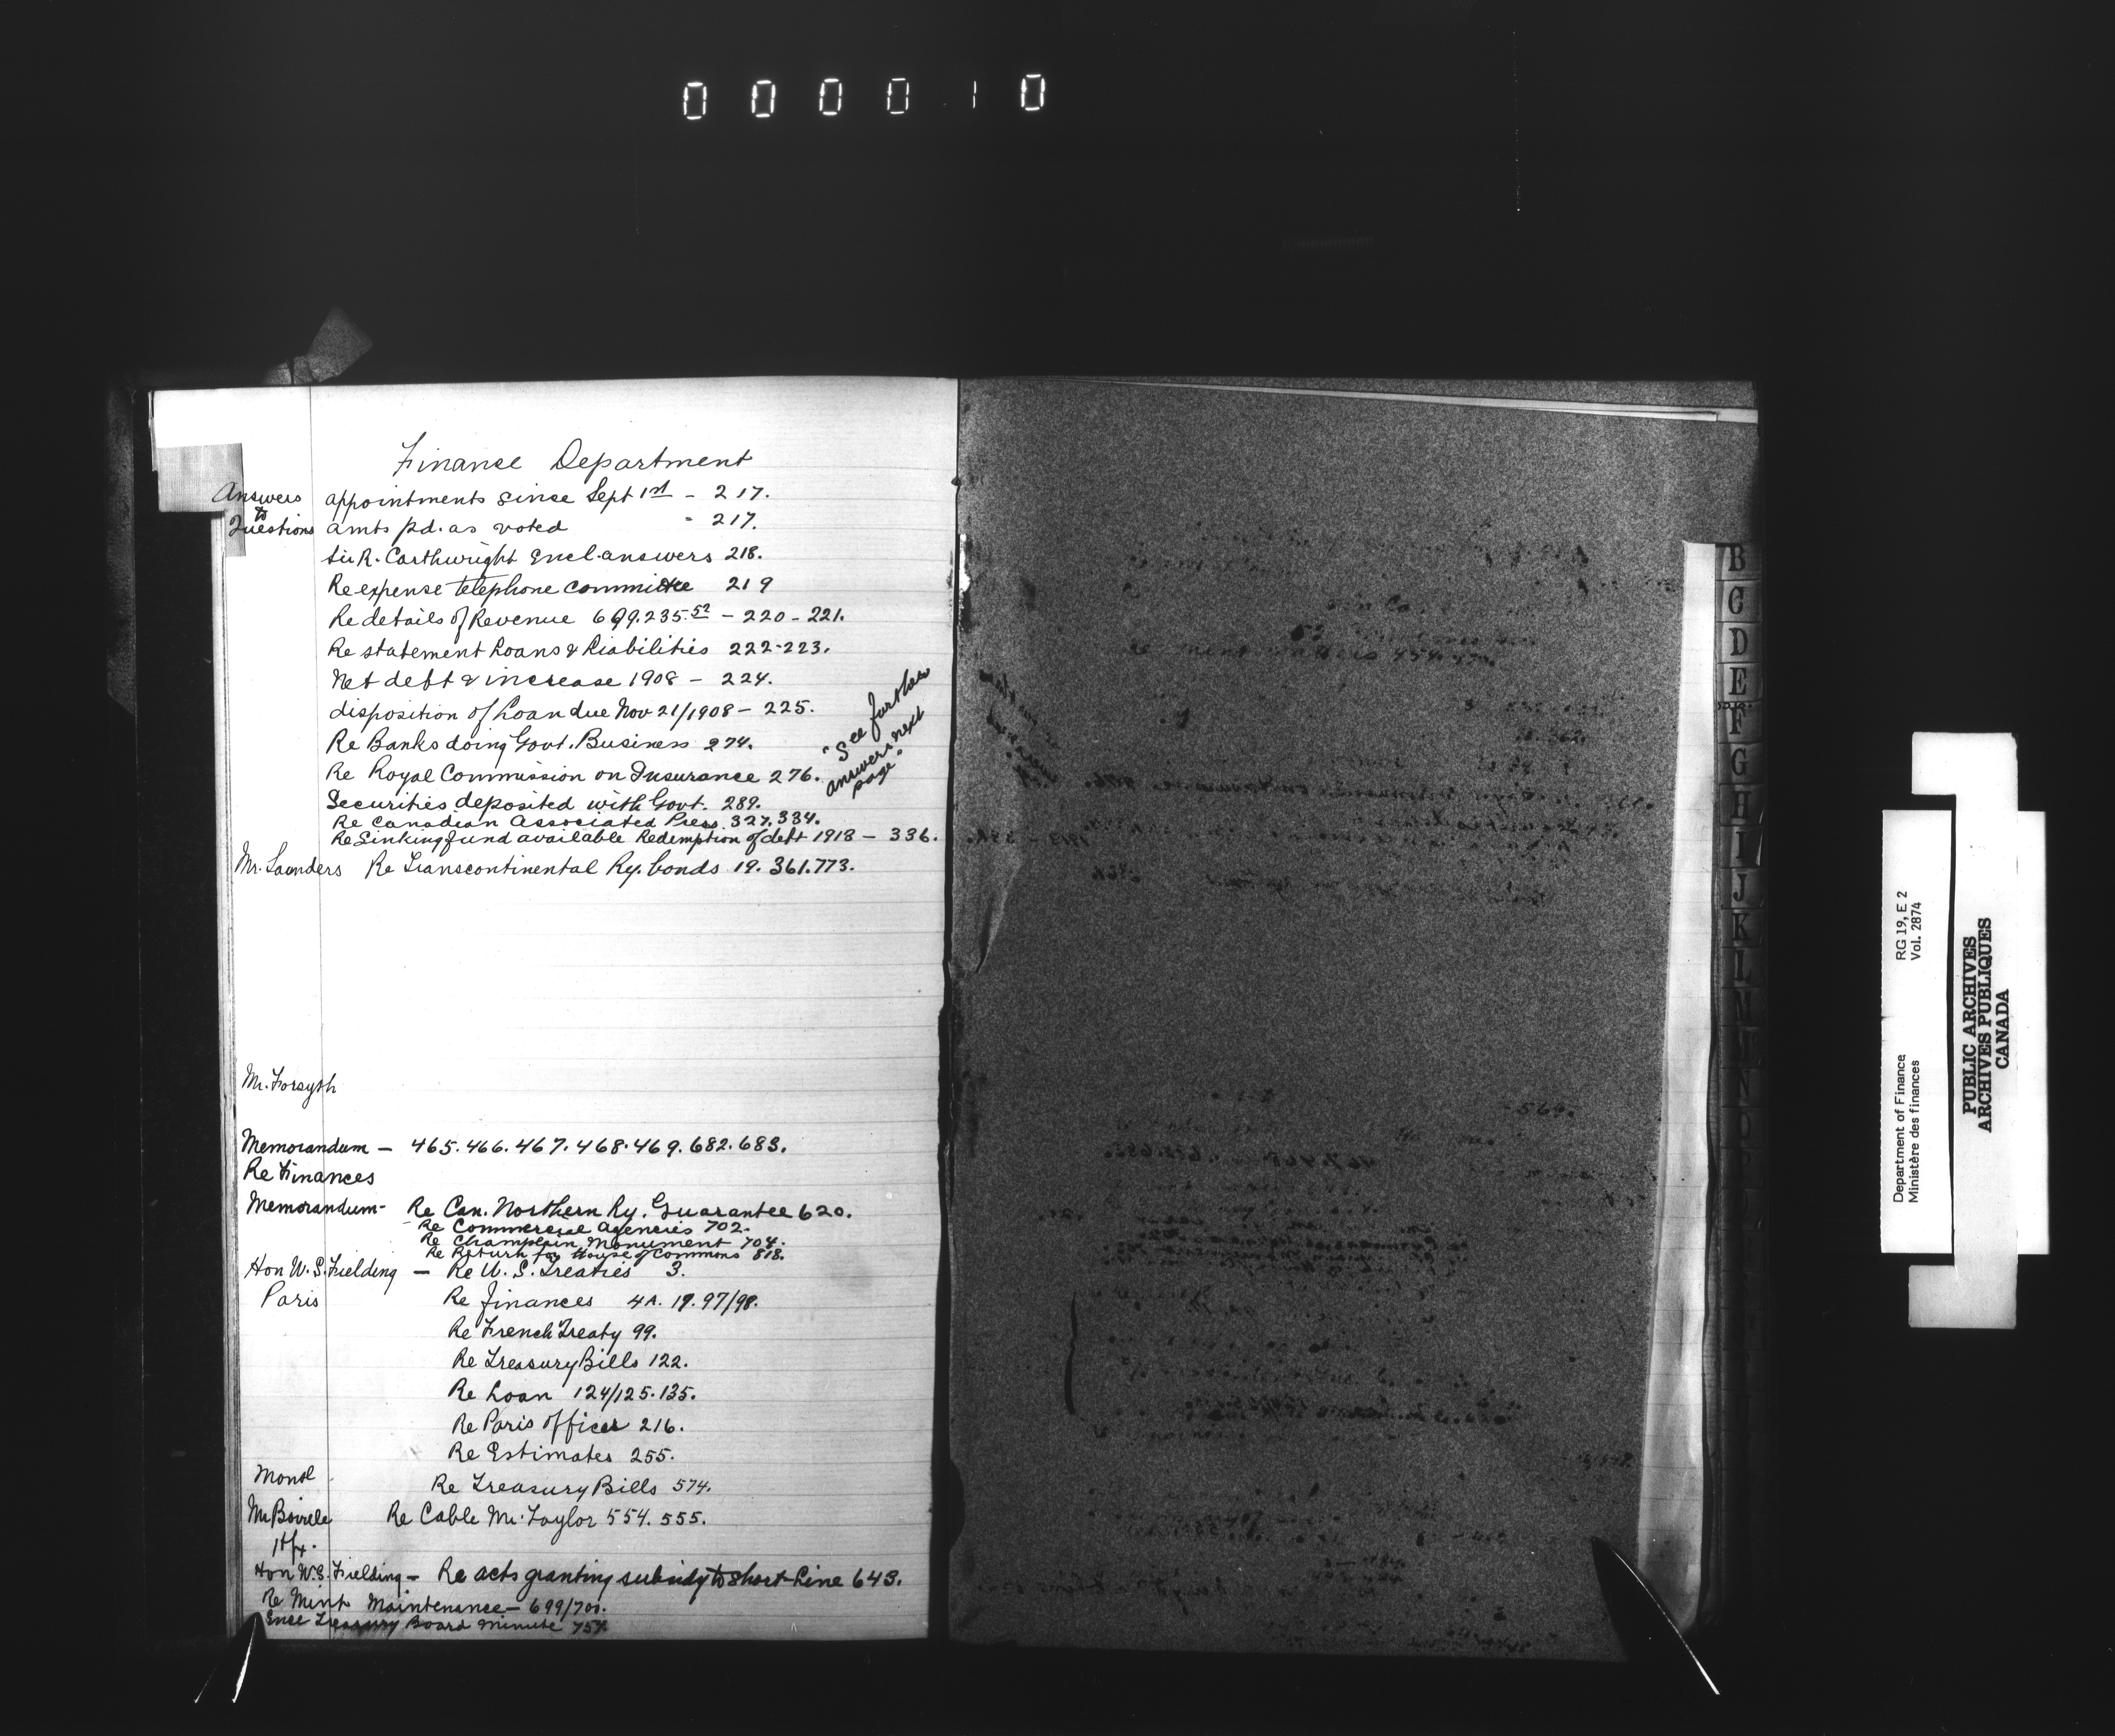 000010
Finance Department
Answers to Questions
appointments since Sept 1st - 217.
amts pd. as voted - 217.
Sir R. Carthwright Encl. answers 218.
Re expense telephone committee 219
Re details of Revenue 699.235.52 - 220-221.
Re statement Loans & Liabilities 222-223.
Net debt & increase 1908 - 224.
disposition of Loan due Nov 21/1908 - 225.
Re Banks doing Govt. Business 274.
Re Royal Commission on Insurance 276.
"See further answers next page"
Securities deposited with Govt. 289.
Re Canadian Associated Press 327.334.
Re Sinking fund available Redemption of debt 1913 - 336.
Mr. Saunders Re Transcontinental Ry. bonds 19. 361.773.
Mr. Forsyth
Memorandum - 465.466.467.468.469.682.683.
Re Finances
Memorandum - Re Can. Northern Ry. Guarantee 620.
Re Commercial Agencies 702.
Re Champlain Monument 704.
Re Return for House of Commons 818.
Hon W. S. Fielding - Re U. S. Treaties 3.
Paris Re finances 4A. 19. 97/98.
Re French Treaty 99.
Re Treasury Bills 122.
Re Loan 124/125.135.
Re Paris Office 216.
Re Estimates 255.
Montl Re Treasury Bills 574.
Mr Boville Re Cable Mr. Taylor 554. 555.
Hfx.
Hon W.S. Fielding - Re acts granting subsidy to Short Line 643.
Re Mint Maintenance - 699/700.
Encl Treasury Board Minute
B
C
D
E
F
G
H
I
J
K
L
M
N
O
P
Department of Finance RG 19, E 2
Ministère des finances Vol. 2874
PUBLIC ARCHIVES
ARCHIVES PUBLIQUES
CANADA